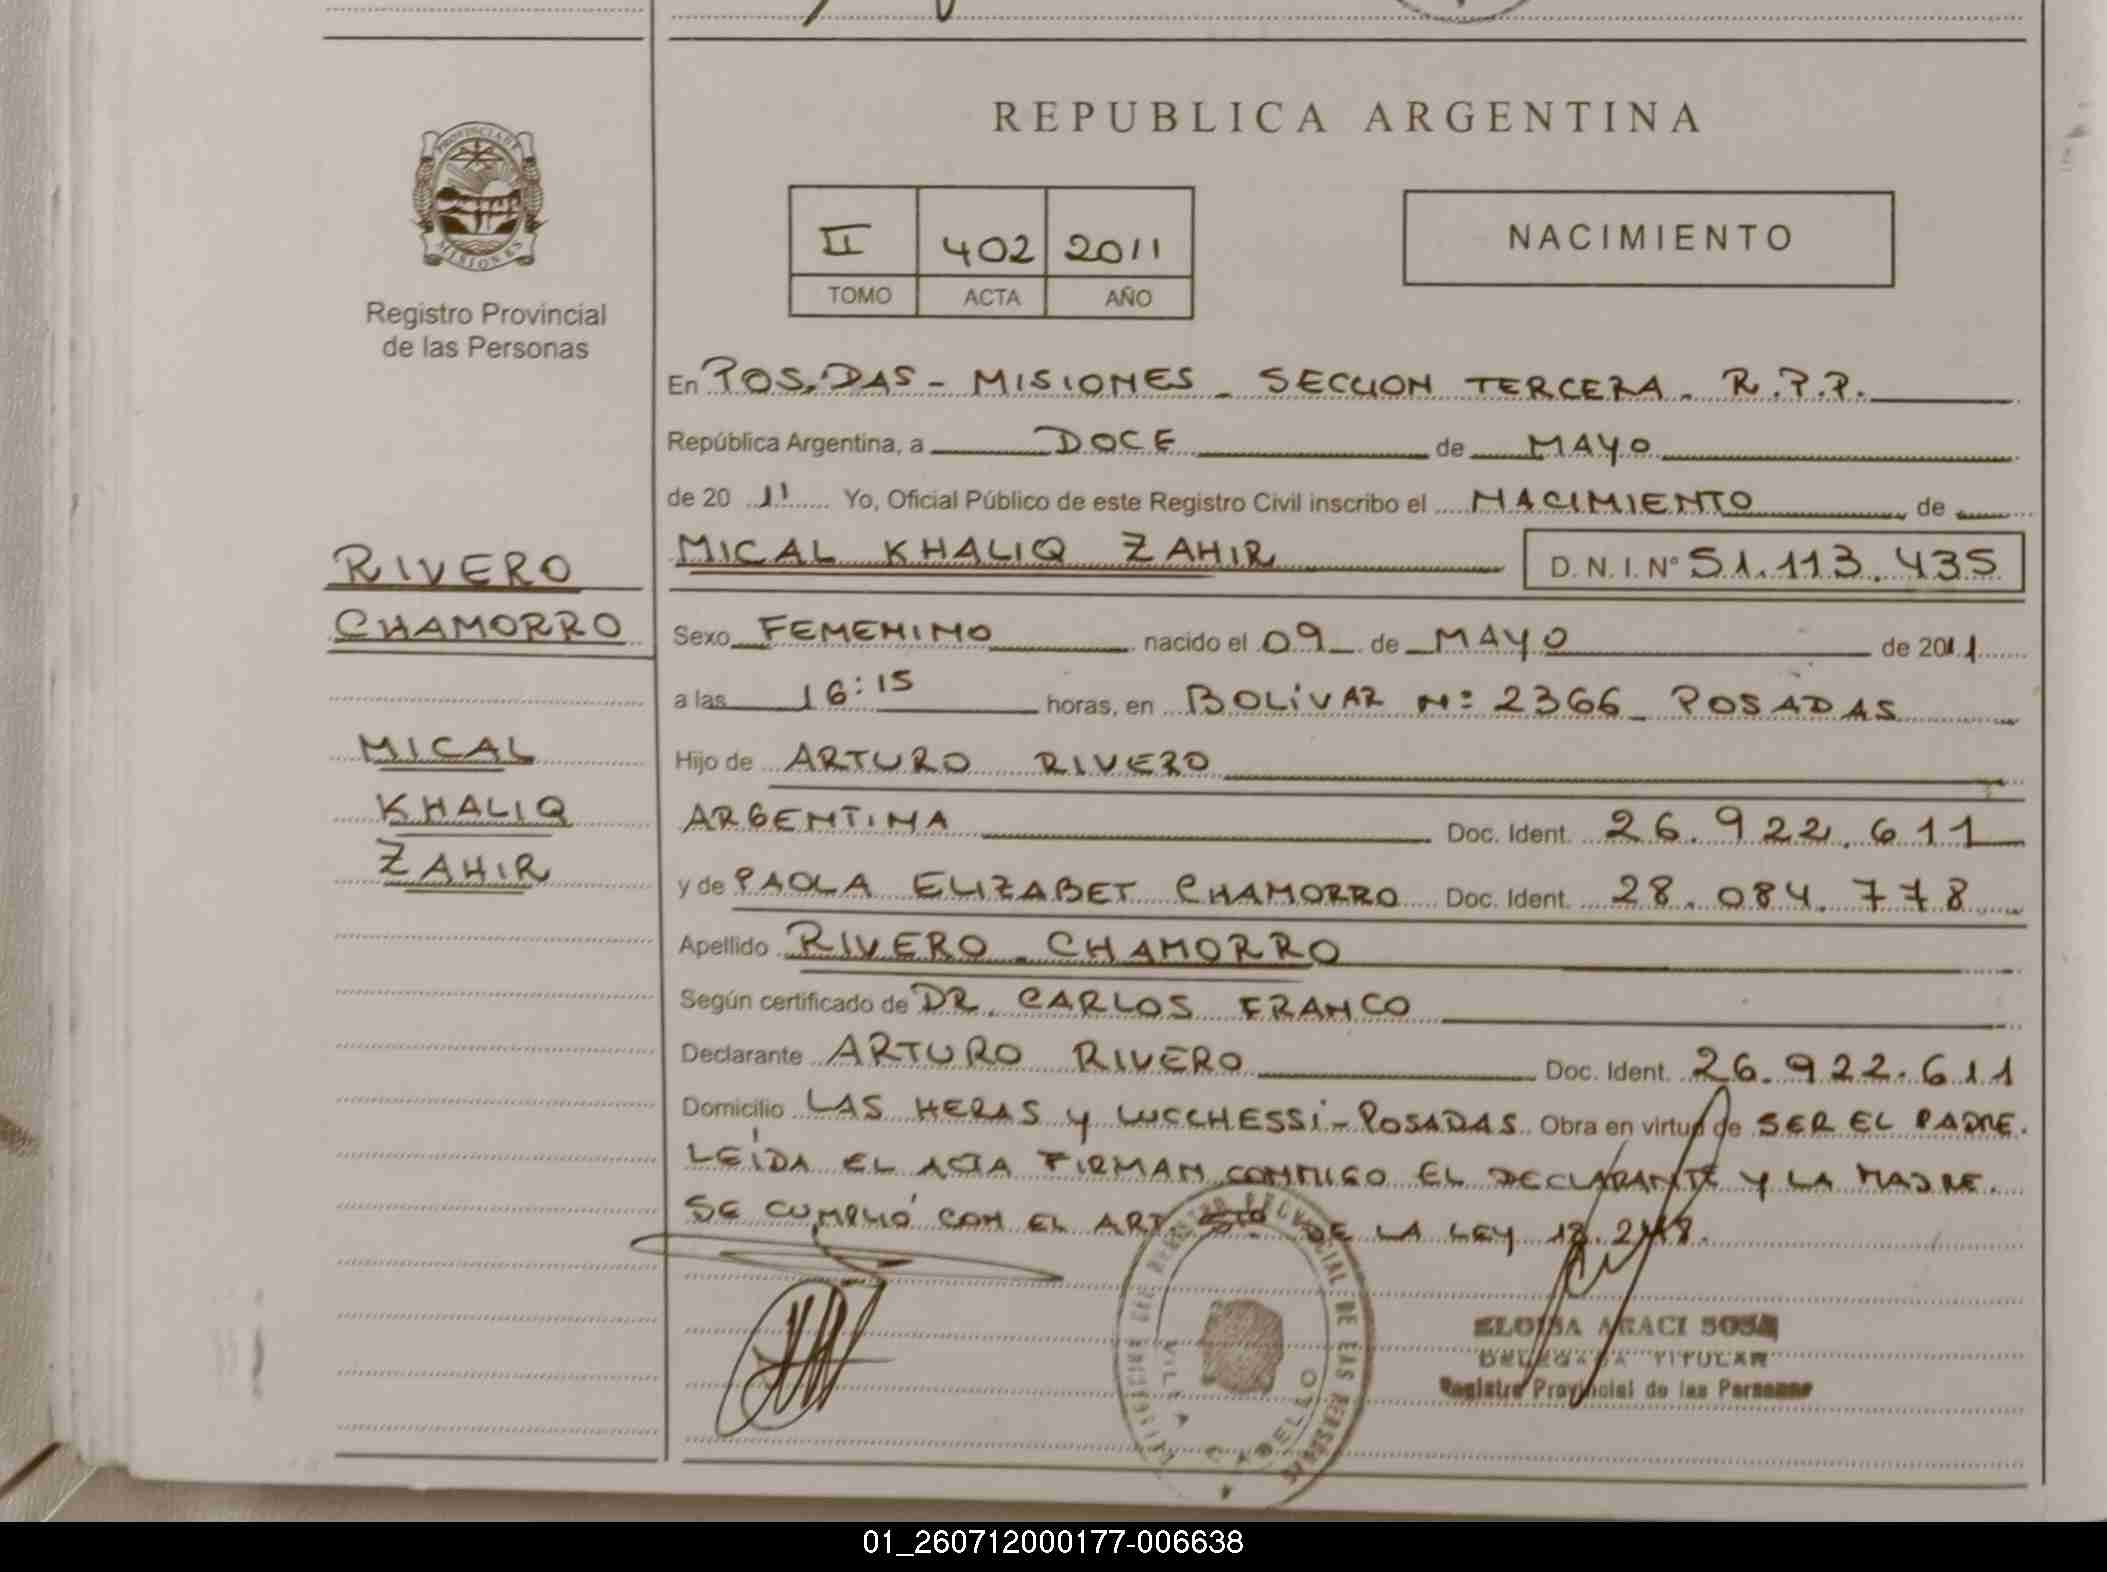 REPUBLICA ARGENTINA
PROVINCIA DE
MISIONES
Registro Provincial
de las Personas
II 402 2011
TOMO ACTA AÑO
NACIMIENTO
En POSADAS - MISIONES - SECCION TERCERA. R.P.P.
República Argentina, a DOCE de MAYO
de 20 11 Yo, Oficial Público de este Registro Civil inscribo el NACIMIENTO de
RIVERO
CHAMORRO
MICAL
KHALIQ
ZAHIR
MICAL KHALIQ ZAHIR D.N.I. Nº 51.113.435
Sexo FEMENINO nacido el 09 de MAYO de 2011
a las 16:15 horas, en BOLÍVAR Nº 2366 - POSADAS
Hijo de ARTURO RIVERO
ARGENTINA Doc. Ident. 26.922.611
y de PAOLA ELIZABET CHAMORRO Doc. Ident. 28.084.778
Apellido RIVERO - CHAMORRO
Según certificado de DR. CARLOS FRANCO
Declarante ARTURO RIVERO Doc. Ident. 26.922.611
Domicilio LAS HERAS Y LUCCHESSI - POSADAS Obra en virtud de SER EL PADRE.
LEÍDA EL ACTA FIRMAN CONMIGO EL DECLARANTE Y LA MADRE.
SE CUMPLIÓ CON EL ART 5to DE LA LEY 18.248.
REGISTRO PROVINCIAL DE LAS PERSONAS
VILLA CABELLO
ELOISA ARACI SOSA
DELEGADA TITULAR
Registro Provincial de las Personas
01_260712000177-006638